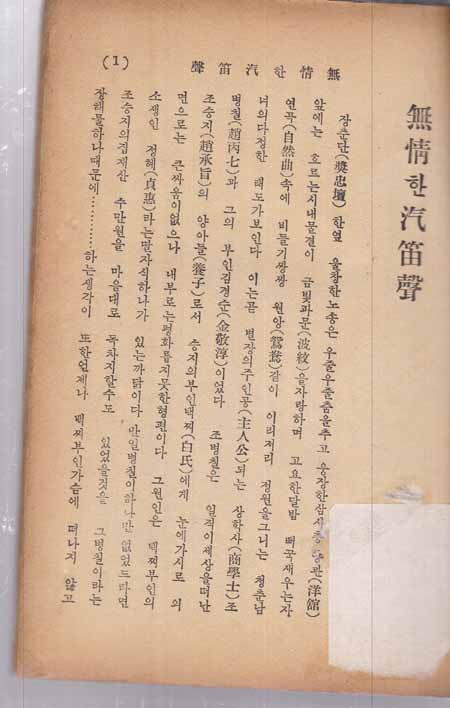 無情한汽笛聲 (1)
無情한汽笛聲
장춘단(奬忠壇) 한옆 울창한노송은 우줄우줄춤을추고 웅장한삼사층양관(洋舘)
앞에는 흐르는시내물결이 금빛파문(波紋)을자랑하며 고요한달밤 뻐꾹새우는자
연곡(自然曲)속에 비들기쌍쌍 원앙(鴛鴦)같이 이리저리 정원을그니는 청춘남
녀의다정한 태도가보인다 이는곧 별장의주인공(主人公)되는 상학사(商學士)조
병칠(趙丙七)과 그의 부인김경순(金敬淳)이었다 조병칠은 일직이세상을떠난
조승지(趙承旨)의 양아들(養子)로서 승지의부인백찌(白氏)에게 눈에가시로 외
면으로는 큰싸움이없으나 내부로는평화롭지못한형편이다 그원인은 백찌부인의
소생인 정혜(貞惠)라는딸자식하나가 있는까닭이다 만일병칠이하나만 없었드라면
조승지의집재산 수만원을 마음대로 독차지할수도 있었을것을 그병칠이라는
장해물하나때문에…………하는생각이 또한언제나 백찌부인가슴에 떠나지 않고